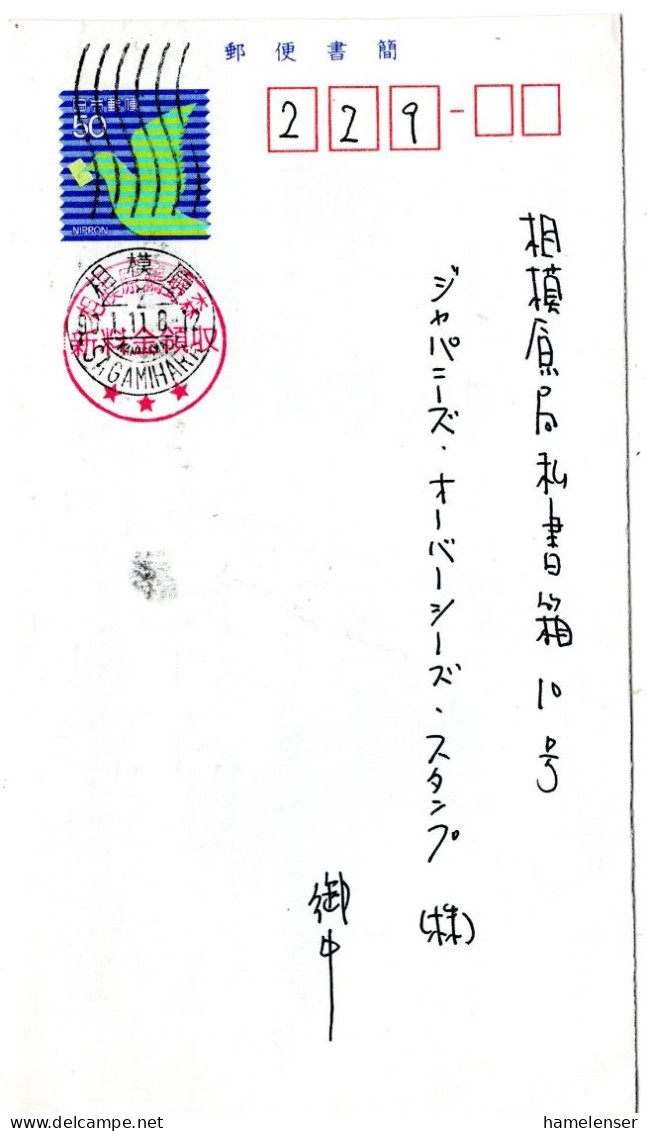 郵便書簡
日本郵便
50
NIPRON
229
相模原
SAGAMIHARA
新料金領収
相模原局私書箱10号
ジャパニーズ・オーバーシーズ・スタンプ(株)
御中
www.delcampe.net
hamelenser